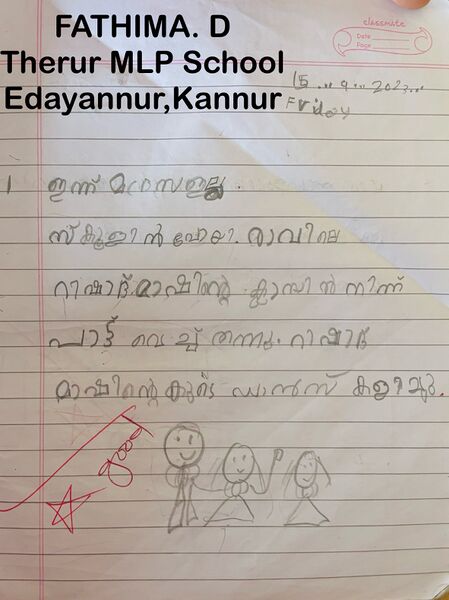 FATHIMA. D
Therur MLP School
Edayannur,Kannur
classmate
Date
Page
15 . 9 . 2023
Friday
1 ഇന്ന് മദ്രസഇല്ല.
സ്കൂളിൽ പോയി. രാവിലെ
റിഷാദ് മാഷിൻ്റെ ക്ലാസിൽ നിന്ന്
പാട്ട് വെച്ച് തന്നു. റിഷാദ്
മാഷിൻ്റെകൂടെ ഡാൻസ് കളിച്ചു.
good